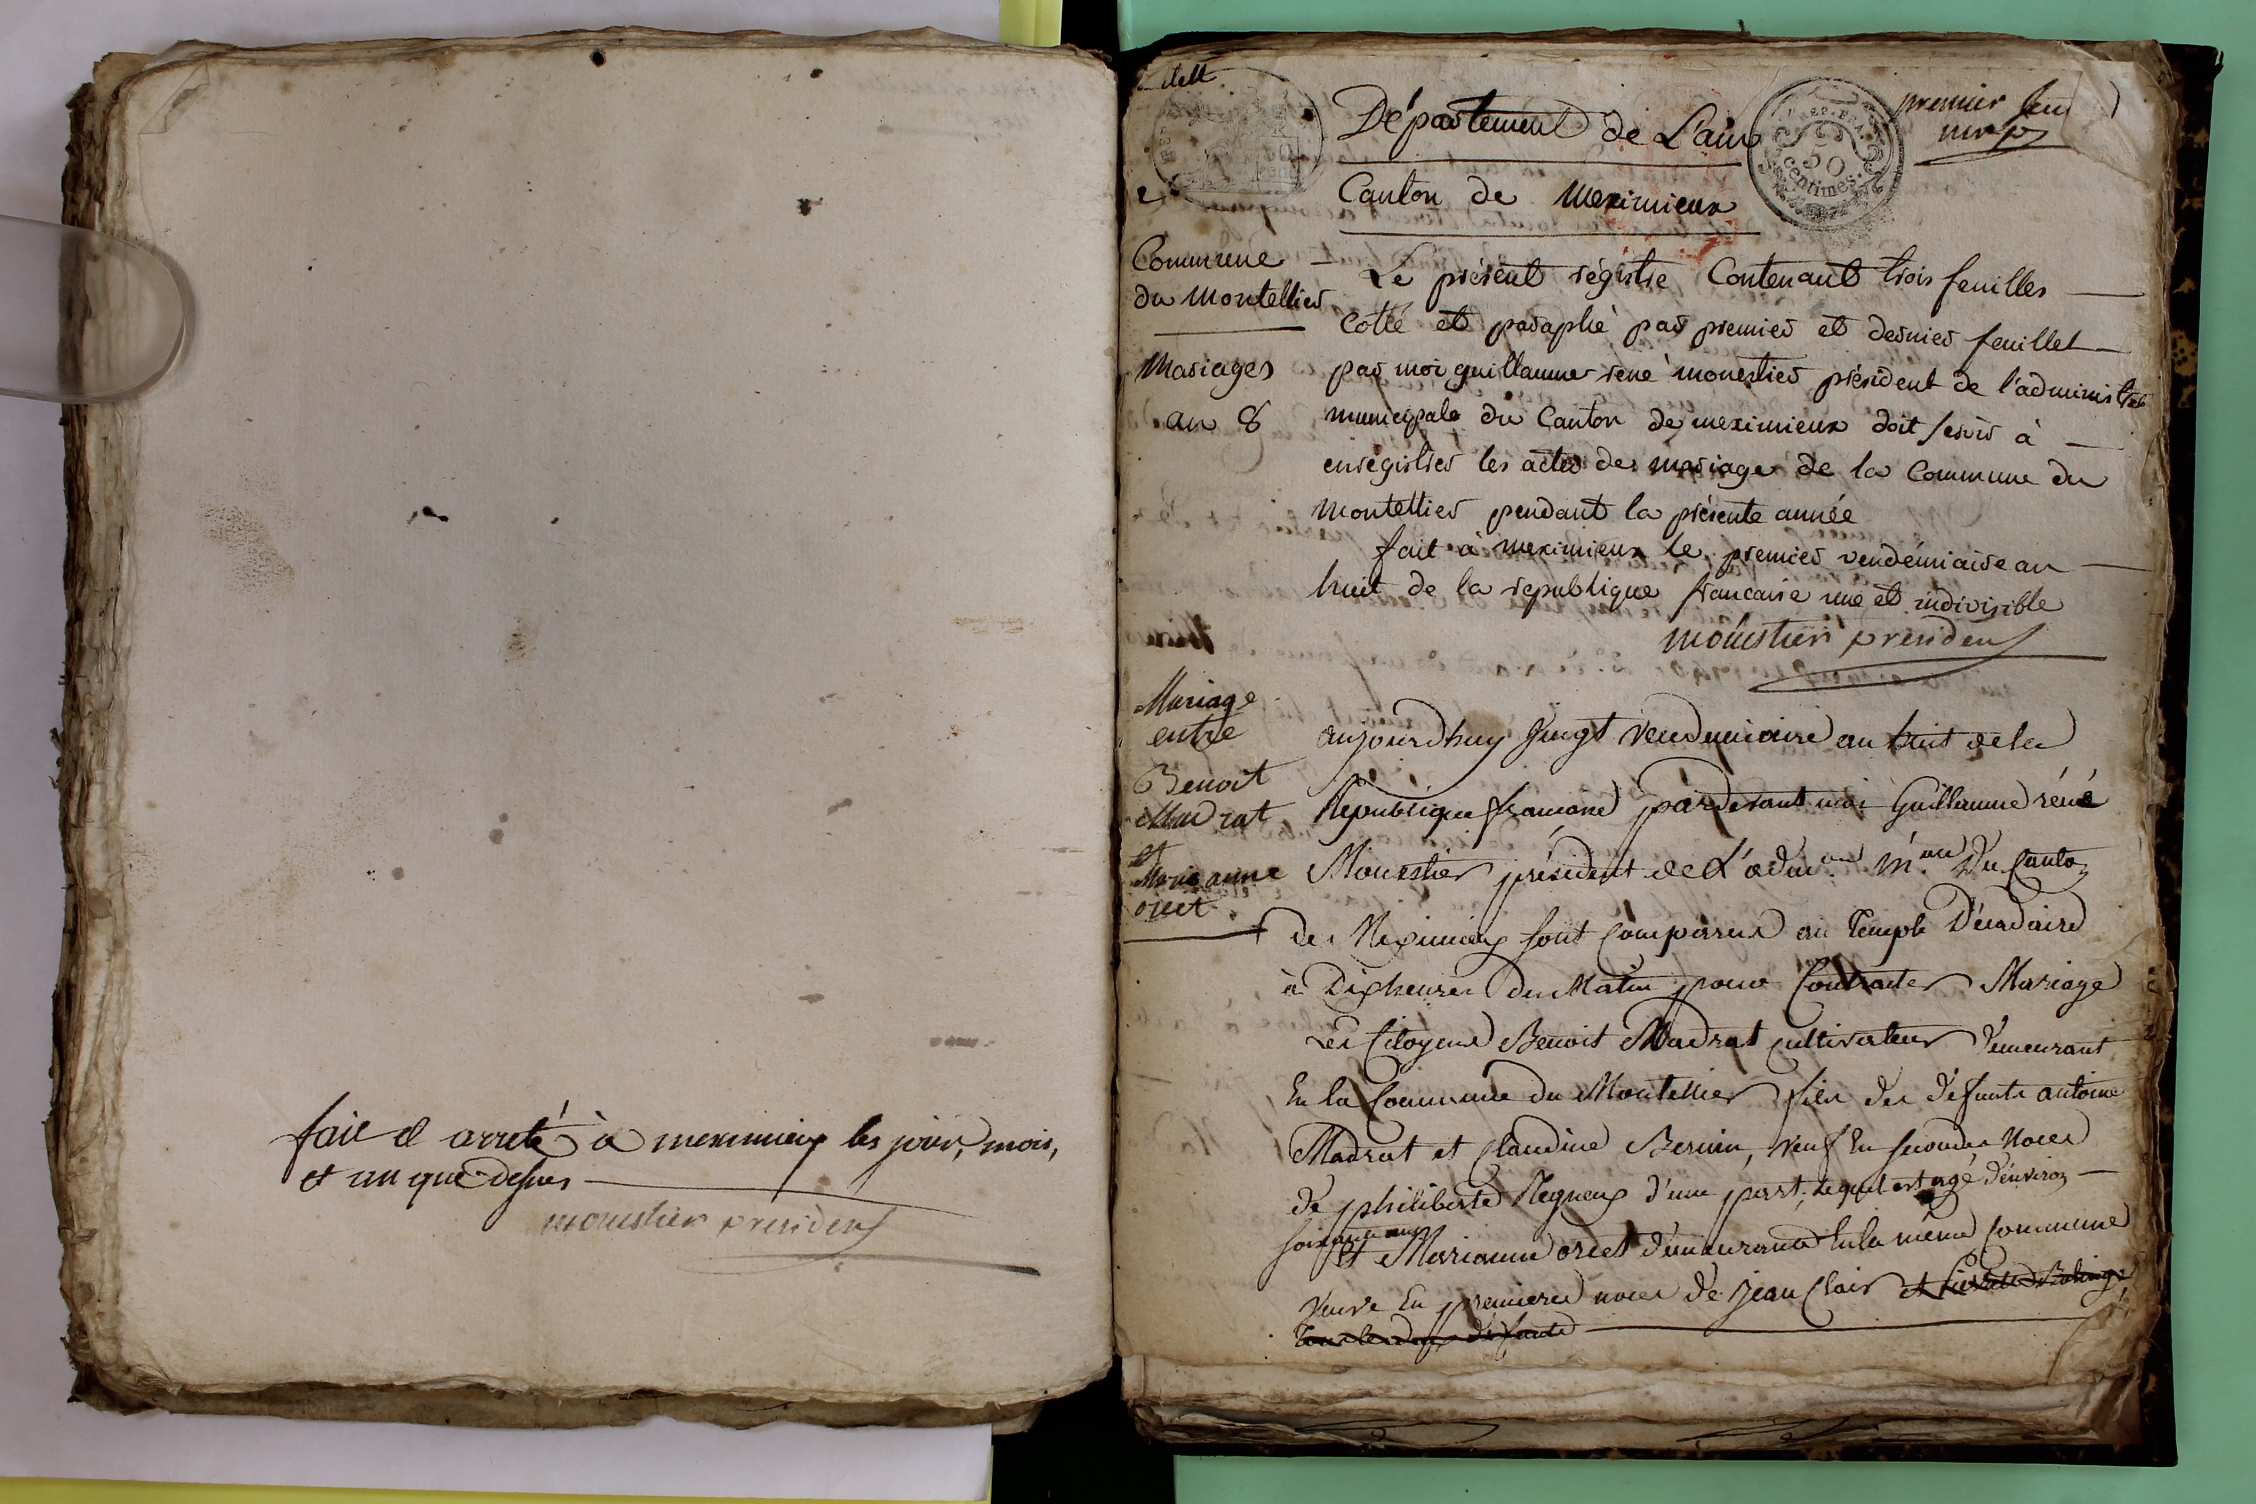 fait et arreté à meximieux les jour, mois,
et an que dessus
monestier president
Département de L'ain
premier feu
REP. FRA.
50
centimes.
Canton de Meximieux
Commune
du Montellier
Mariages
an 8
Le présent régistre Contenant trois feuilles
Cotté et paraphé par premier et dernier feuillet
par moi guillaume rené monestier président de l'administra
municipale du Canton de meximieux doit servir à
enrégistrer les actes de mariage de la Commune du
montellier pendant la présente année
fait à meximieux le premier vendémiaire an
huit de la republique francaise une et indivisible
monestier president
Mariage
entre
Benoit
Madrat
et
Marie anne
oriet
aujourdhuy Vingt Vendemiaire an huit de la
Republique francaise pardevant moi Guillaume réné
Monestier président de L'adm.on M.ale du Canton
de Meximieux sont Comparus au Temple Décadaire
à Dix heures du Matin pour Contracter Mariage
Les Citoyens Benoit Madrat cultivateur demeurant
En la Commune du Montellier fils des défunts antoine
Madrat et Claudine Bernin, veuf En secondes Noces
de philiberte Regneux d'une part, lequel est agé d'environ
soixante ans
Et Marianne oriet demeurante En la même Commune
Veuve En premieres noces de Jean Clair et
tous les deux défunts